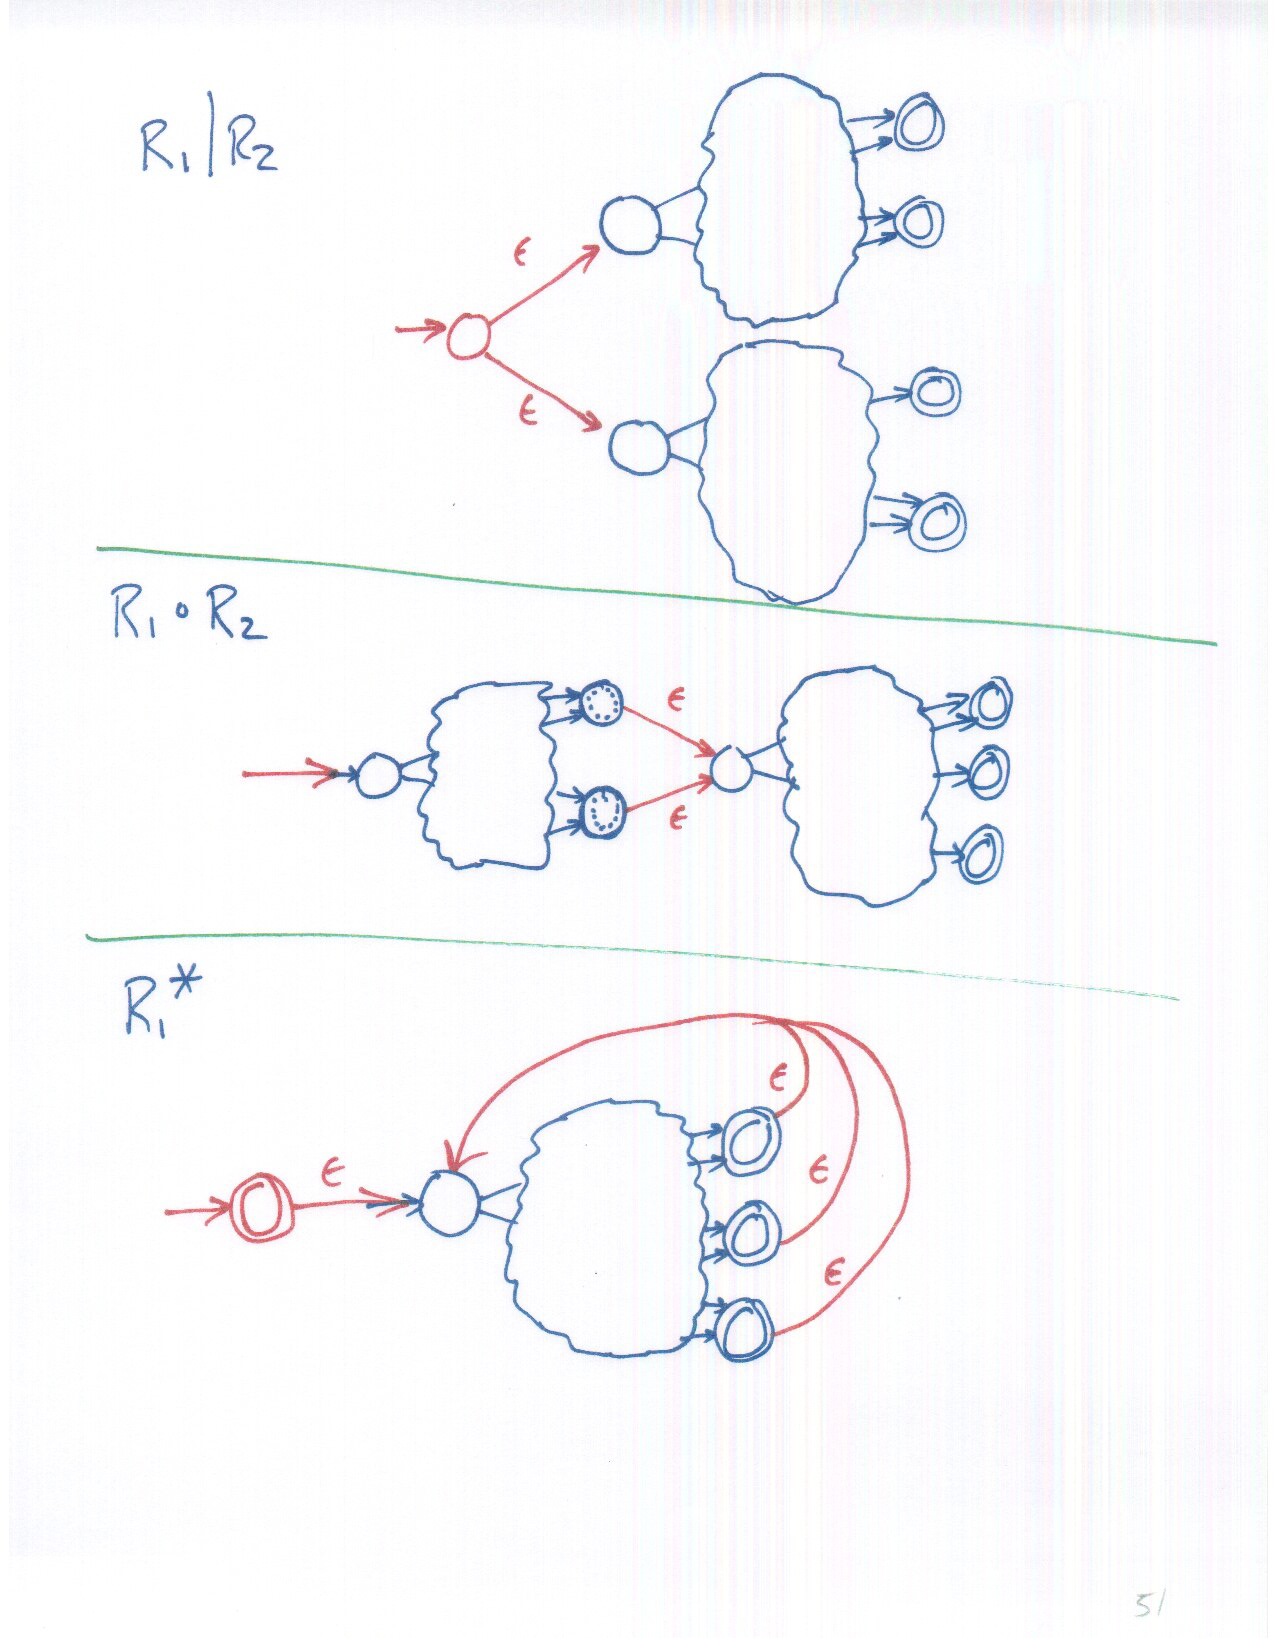 R₁|R₂
ϵ
ϵ
R₁∘R₂
ϵ
ϵ
R₁*
ϵ
ϵ
ϵ
ϵ
51